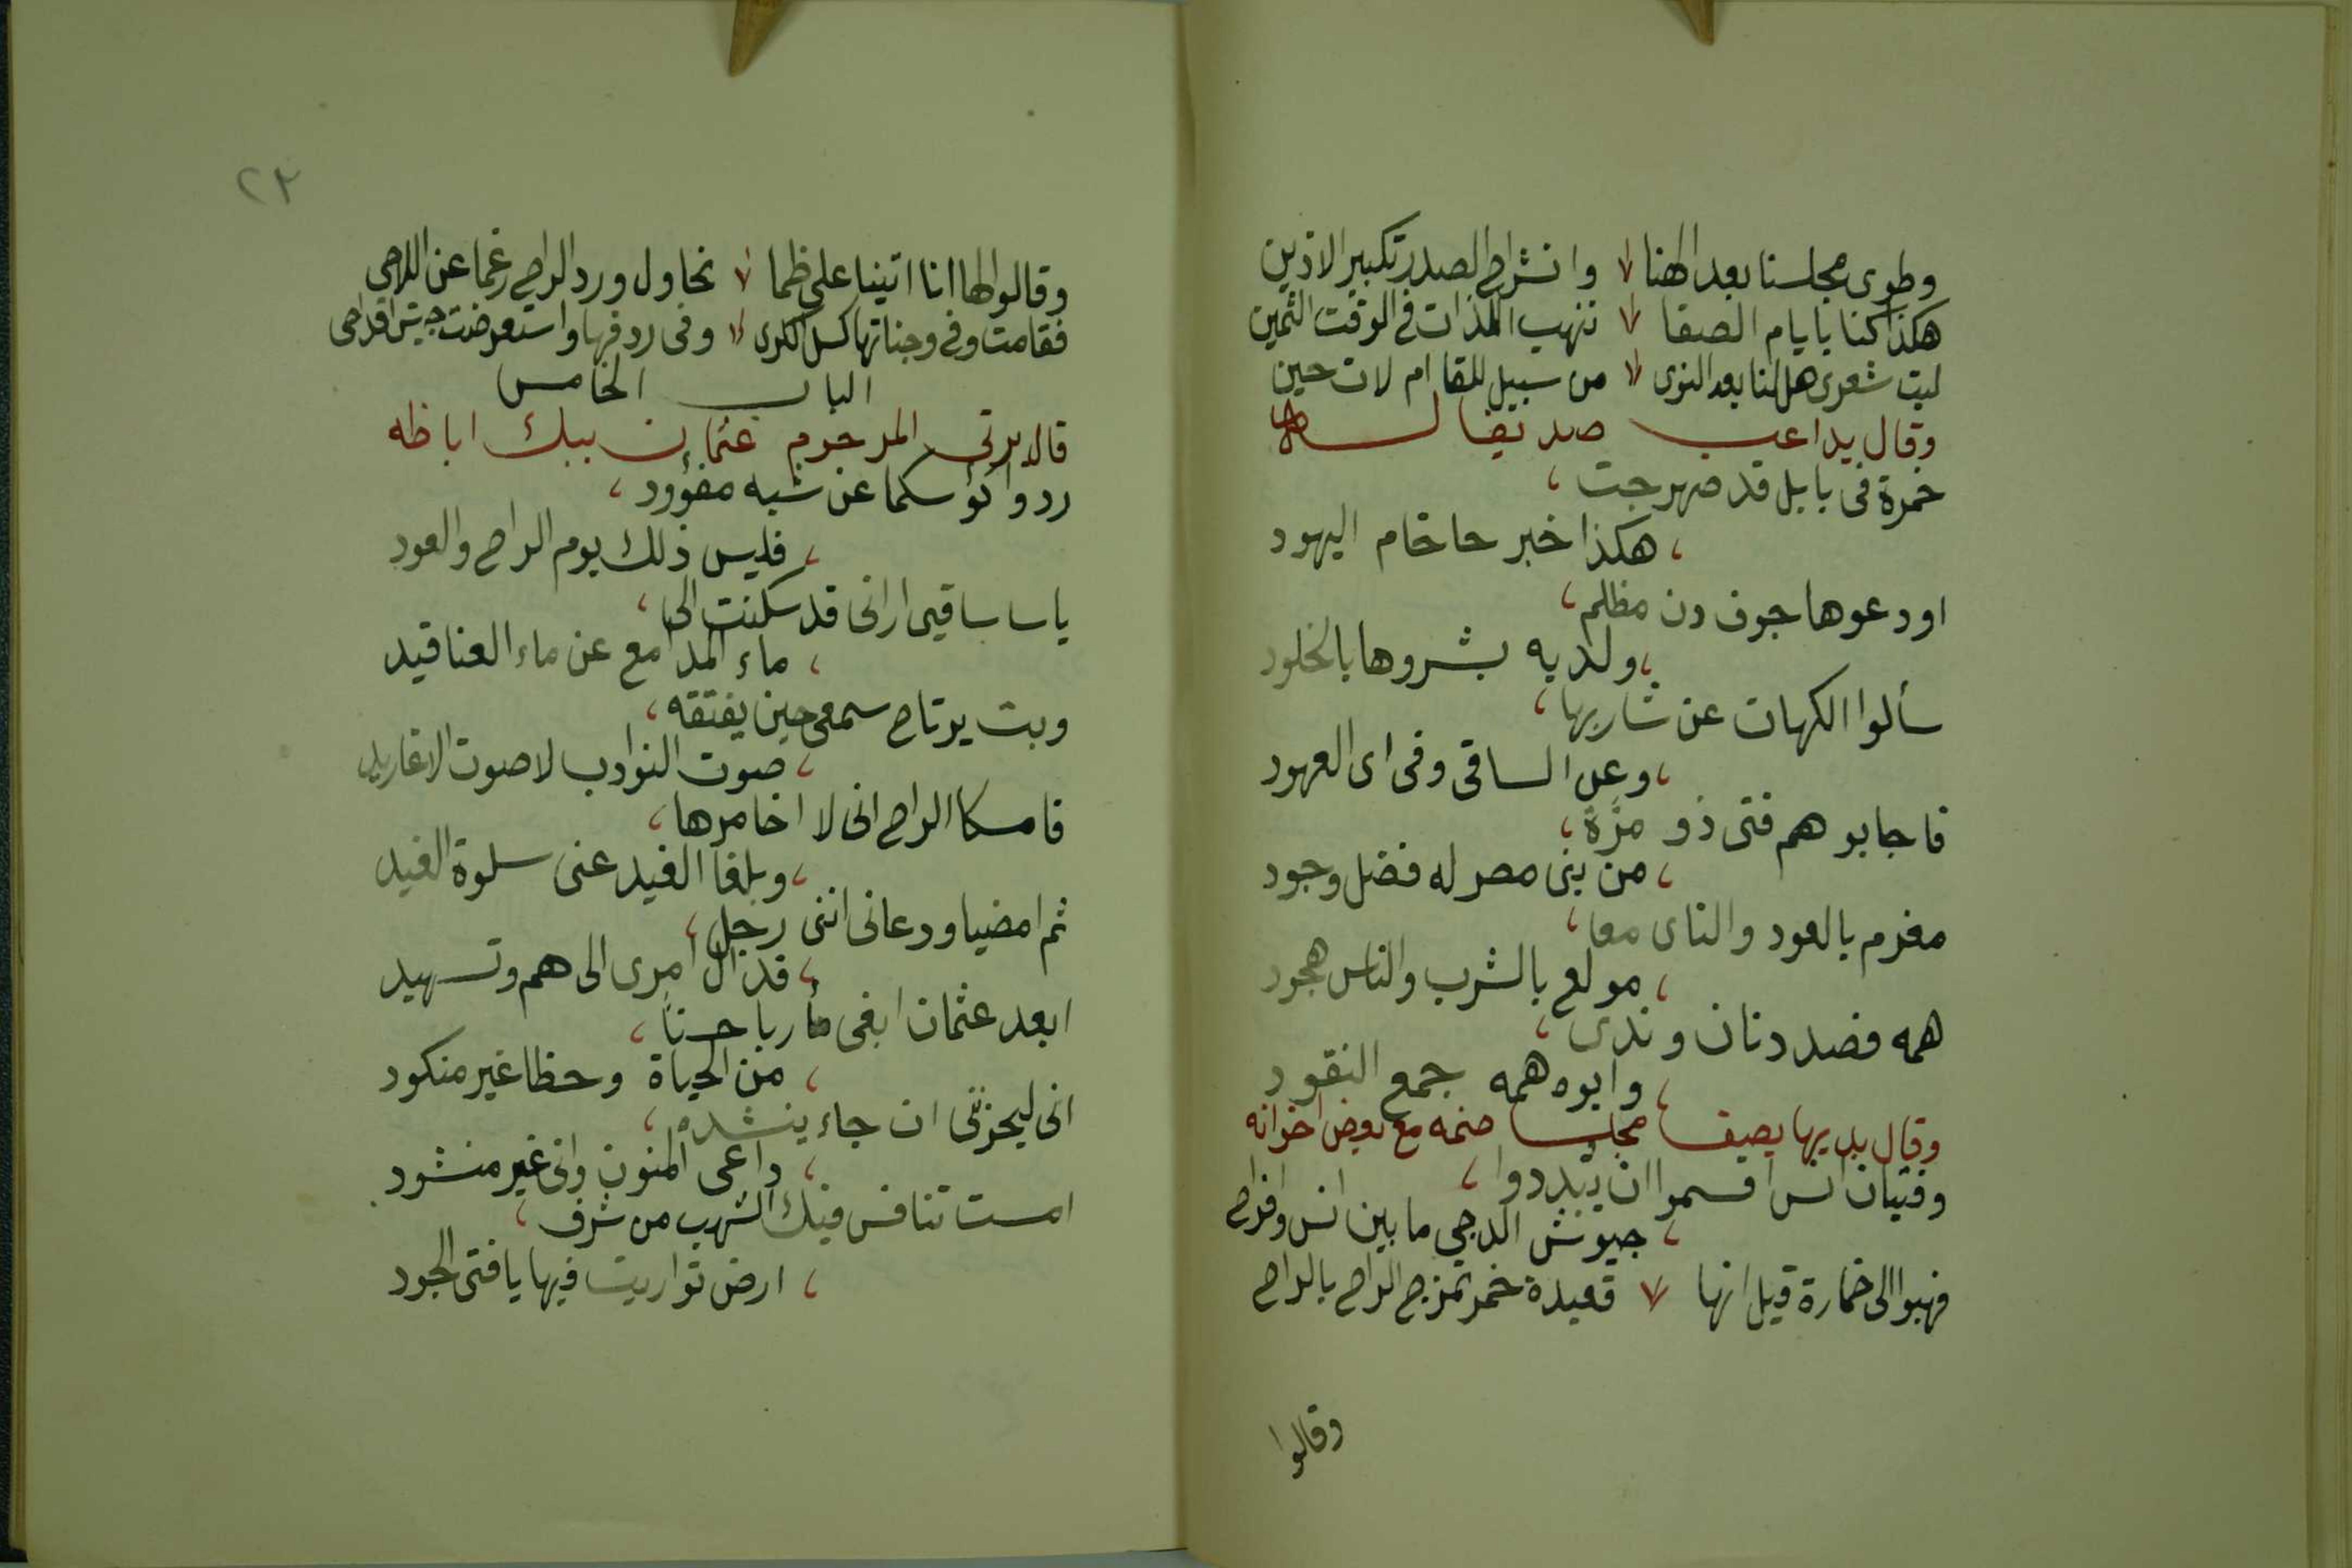 وطوى مجلسنا بعد الهنا وانشراح الصدر تكبير الاذين
هكذا كنا بايام الصفا ننهب اللذات فى الوقت الثمين
ليت شعرى هل لنا بعد النوى من سبيل للقا ام لات حين
وقال يداعب صديقا له
خمرة فى بابل قد صهرجت ،
، هكذا خبر حاخام اليهود
اودعوها جوف دن مظلم ،
، ولديه بشروها بالخلود
سألوا الكهان عن شاربها ،
، وعن الساقى وفى اى العهود
فاجابوهم فتى ذو مزة ،
، من بنى مصر له فضل وجود
مغرم بالعود والناى معا ،
، مولع بالشرب والناس هجود
همه فصد دنان وندى ،
، وابوه همه جمع النقود
وقال بديها يصف مجلسا ضمه مع بعض اخوانه
وفتيان انس اقسموا ان يبددوا ،
، جيوش الدجى ما بين انس وافراح
فهبوا الى خمارة قيل انها قعيدة خمر تمزج الراح بالراح
وقالوا
٢٣
وقالوا لها انا اتينا على ظما نحاول ورد الراح رغما عن اللاحى
فقامت وفى وجناتها كسل الكرى وفى ردفها واستعرضت جيش اقداحى
الباب الخامس
قال يرثى المرحوم عثمان بيك اباظه
ردوا كؤسكما عن شبه مفؤود ،
، فليس ذلك يوم الراح والعود
ياسا ساقيى ارانى قد سكنت الى ،
، ماء المدامع عن ماء العناقيد
وبت يرتاح سمعى حين يفتقه ،
، صوت النوادب لا صوت الاغاريد
فامسكا الراح انى لا اخامرها ،
، وبلغا الغيد عنى سلوة الغيد
ثم امضيا ودعانى اننى رجل ،
، قد آل امرى الى هم وتسهيد
ابعد عثمان ابغى مأربا حسنا ،
، من الحياة وحظا غير منكود
انى ليحزننى ان جاء ينشده ،
، داعى المنون وانى غير منشود
امست تنافس فيك الشهب من شرف ،
، ارض تواريت فيها يا فتى الجود